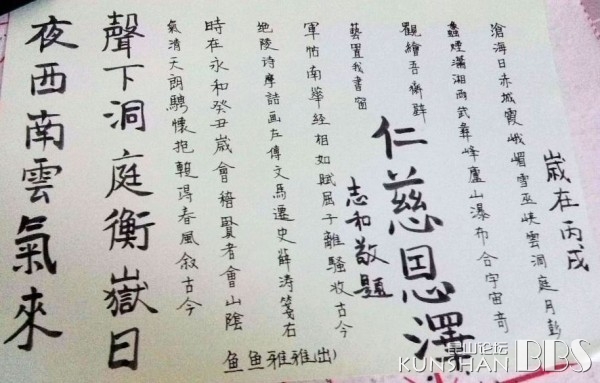 歲在丙戌
滄海日赤城霞峨嵋雪巫峽雲洞庭月彭
蠡煙瀟湘雨武彝峰廬山瀑布合宇宙奇
觀繪吾齋壁
仁慈恩澤
志和敬題
藝置我書窗
軍帖南華經相如賦屈子離騷收古今
陵诗摩詰画左傳文馬遷史薛涛箋右
時在永和癸丑歲會稽賢者會山陰
氣清天朗騁懷抱得春風敘古今
聲下洞庭衡嶽日
夜西南雲氣來
鱼鱼雅雅出)
昆山论坛
KUNSHAN BBS